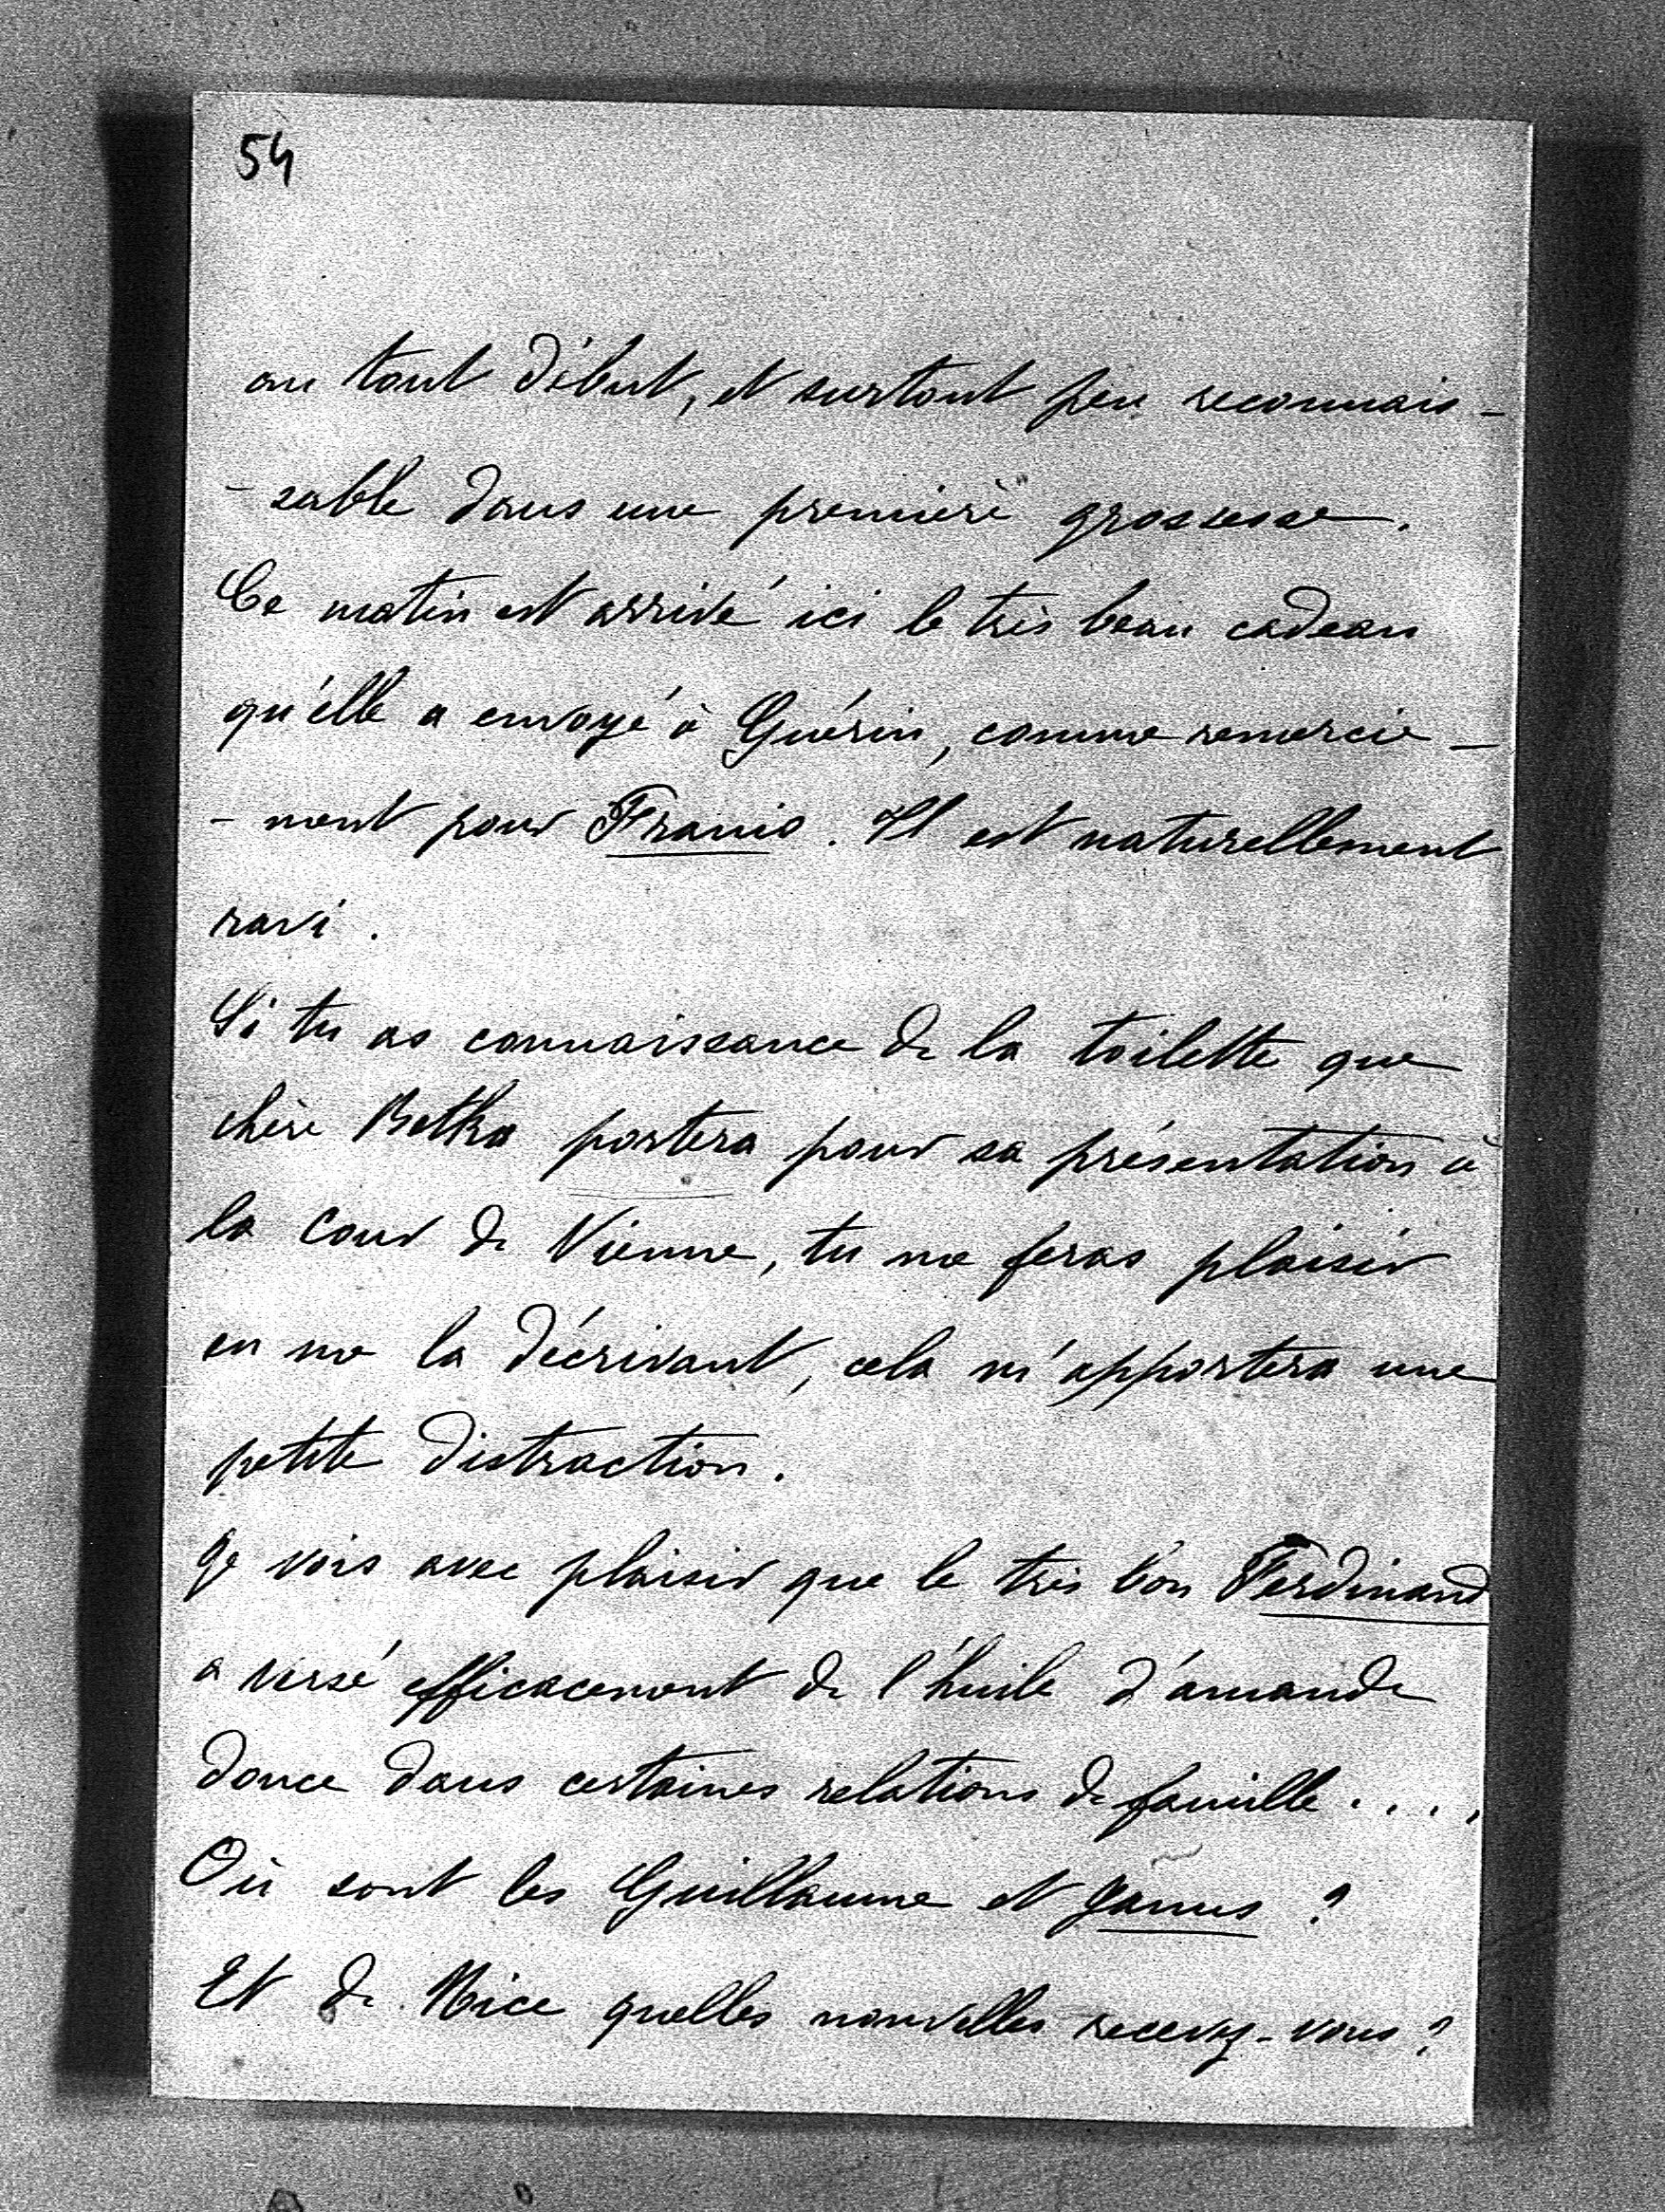 54
au tout début, et surtout peu reconnais-
-sable dans une première grossesse.
Ce matin est arrivé ici le très beau cadeau
qu'elle a envoyé à Guérin, comme remercie-
-ment pour Franio. Il est naturellement
ravi.
Si tu as connaissance de la toilette que
chère Betka portera pour sa présentation à
la cour de Vienne, tu me feras plaisir
en me la décrivant, cela m'apportera une
petite distraction.
Je vois avec plaisir que le très bon Ferdinand
a versé efficacement de l'huile d'amande
douce dans certaines relations de famille....
Où sont les Guillaume et Janus ?
Et de Nice quelles nouvelles recevez-vous ?